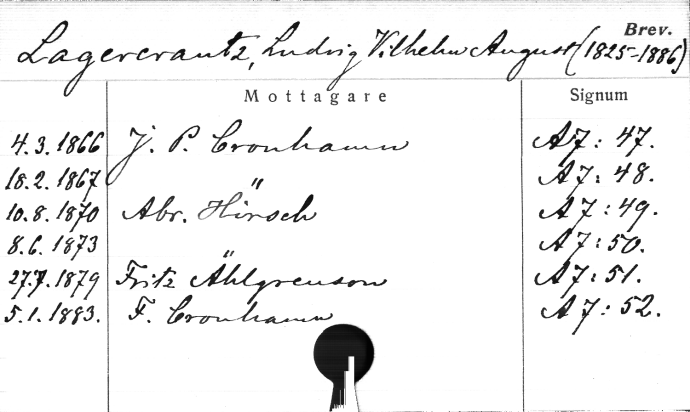 Brev.
Lagercrantz, Ludvig Vilhelm August (1825-1886)
Mottagare Signum
4.3.1866 J. P. Cronhamn A 7: 47.
18.2.1867 " A 7: 48.
10.8.1870 Abr. Hirsch A 7: 49.
8.6.1873 " A 7: 50.
27.7.1879 Fritz Ahlgrensson A 7: 51.
5.1.1883. F. Cronhamn A 7: 52.